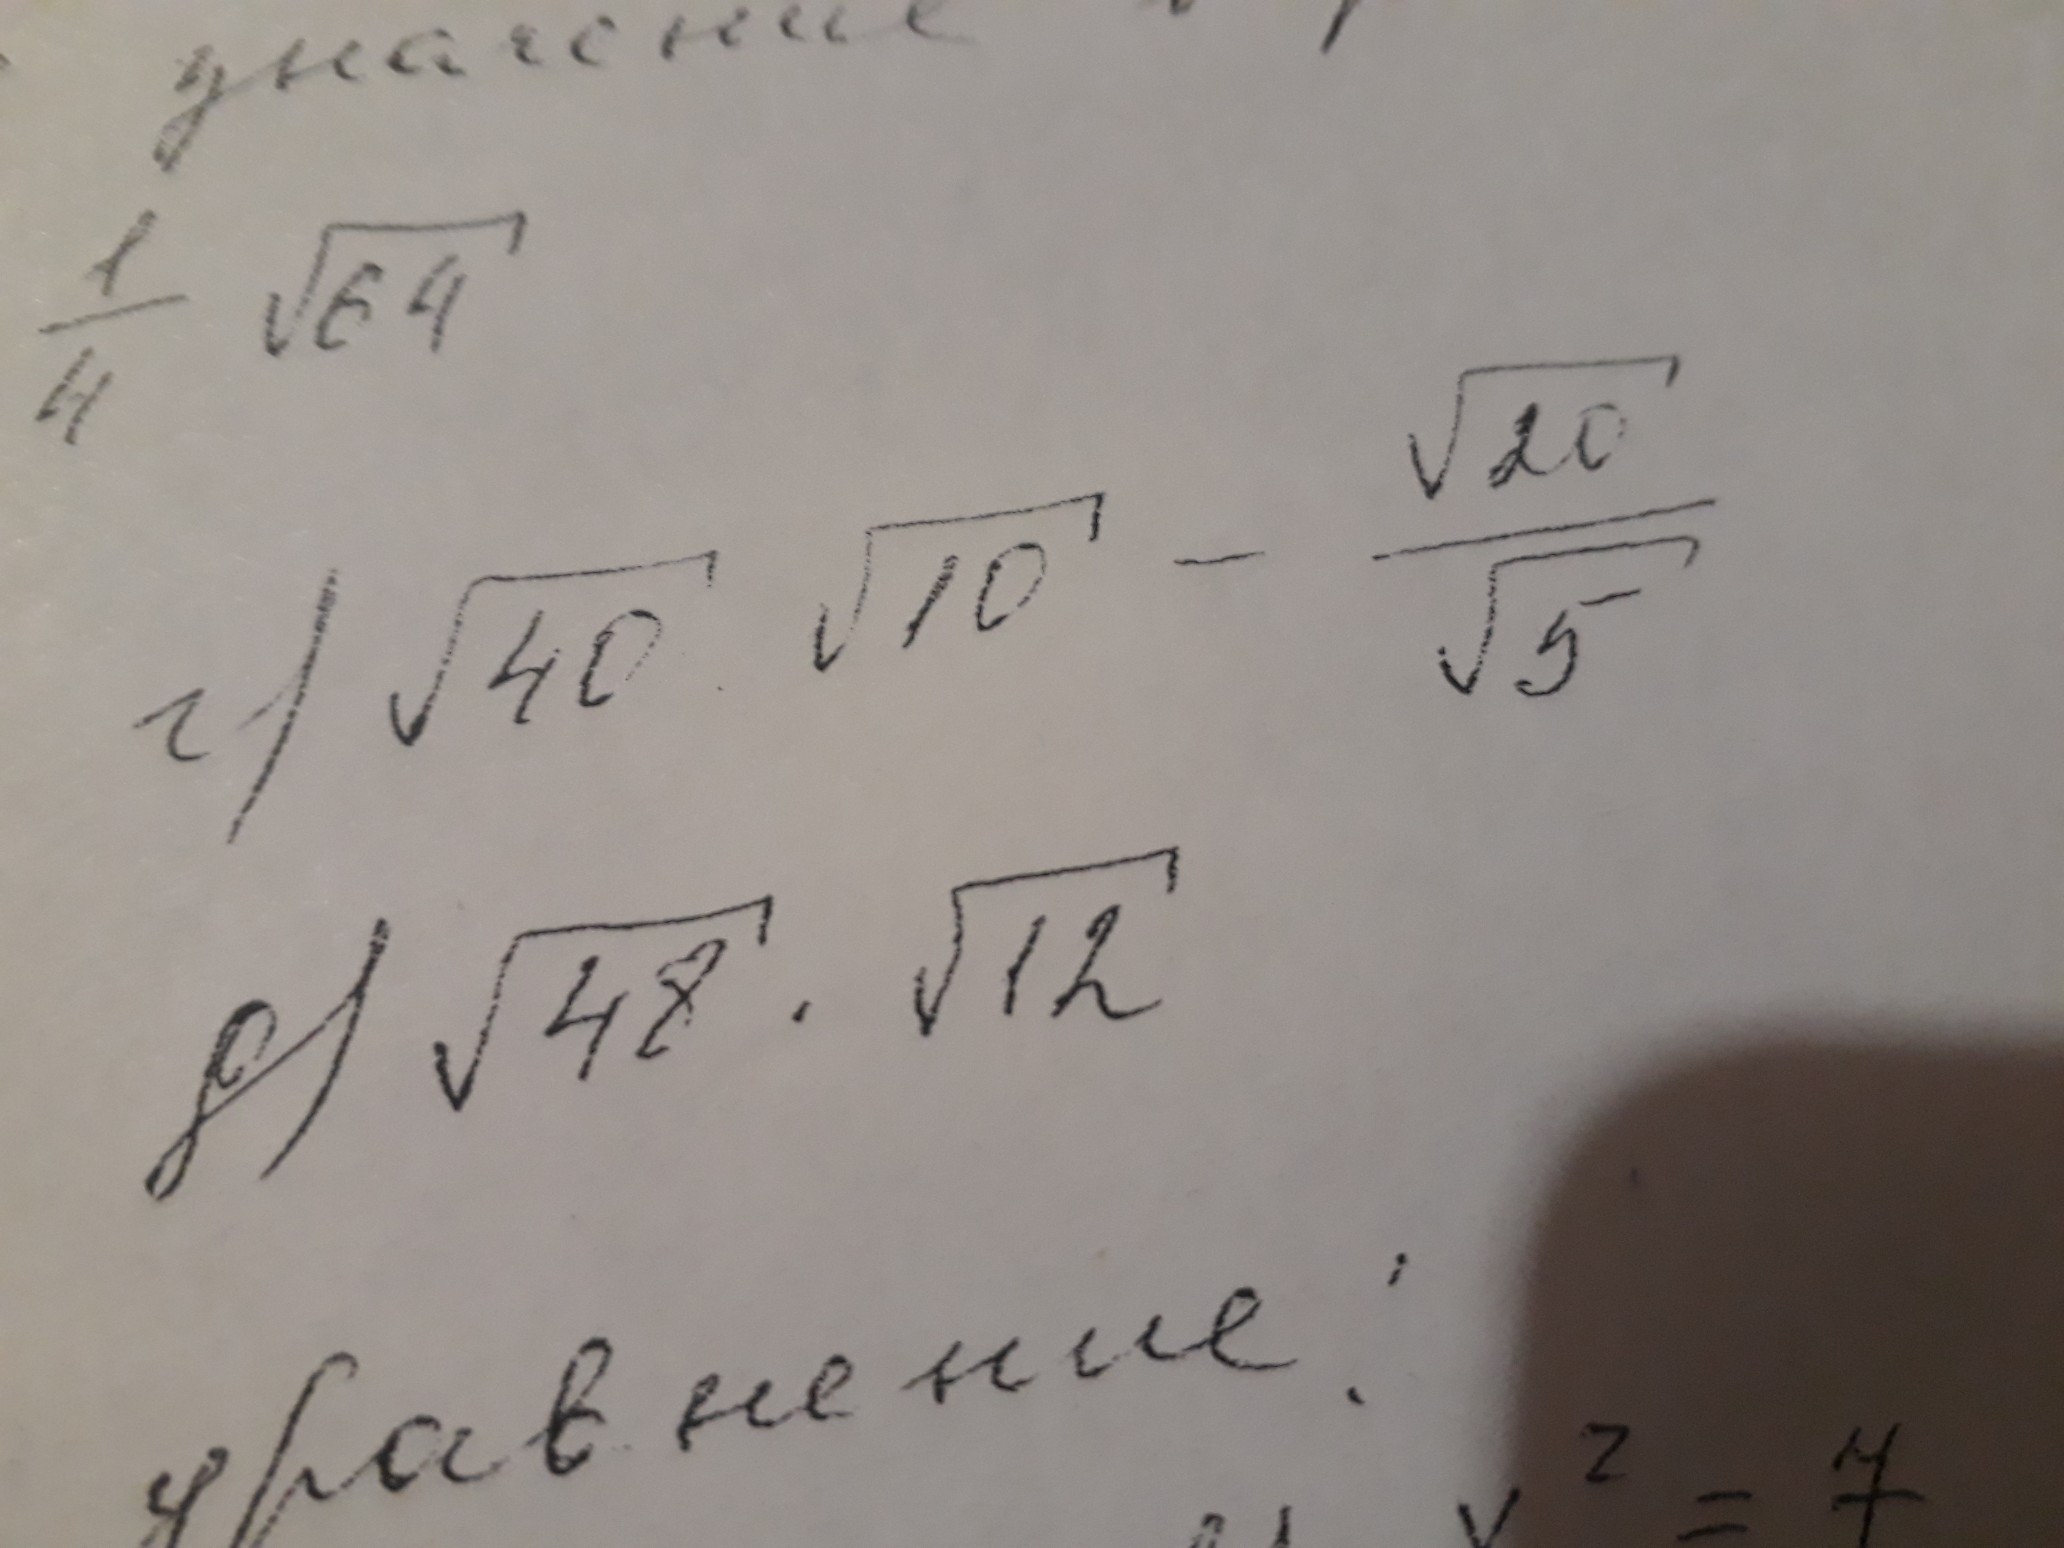 значение
1/4 √64
г) √40 · √10 - √20/√5
д) √48 · √12
уравнение:
x² = 7